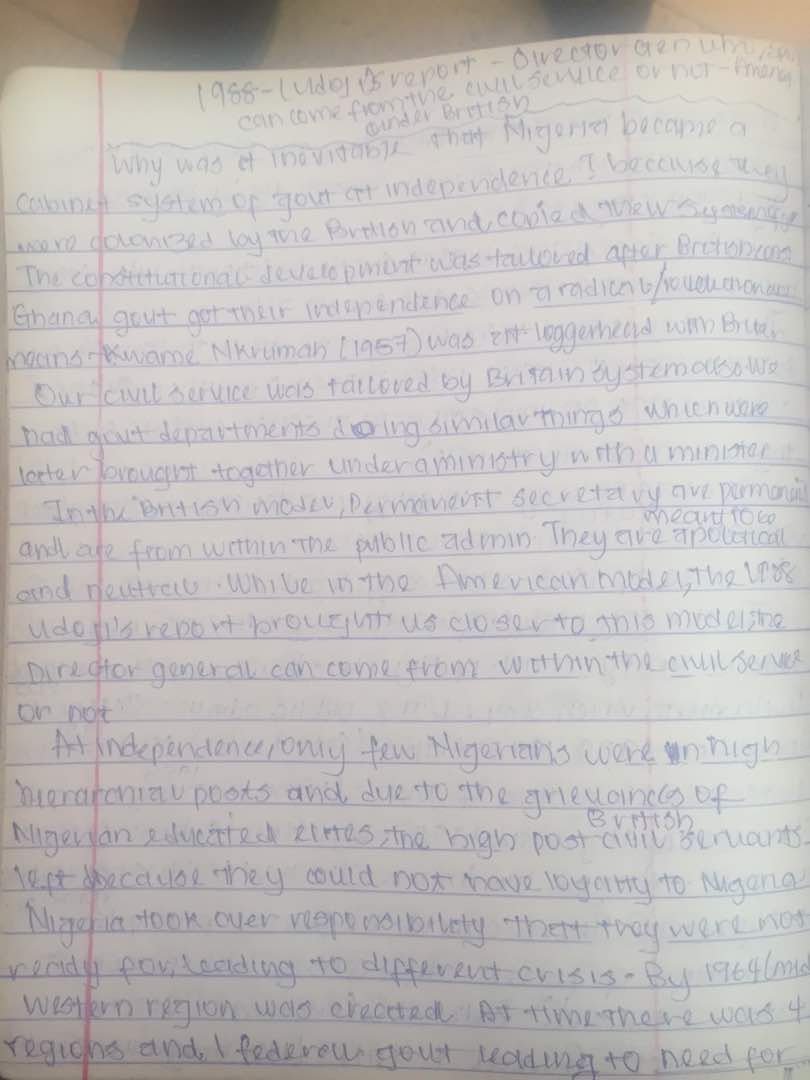 1988-(Udoji's report - Director Gen
can come from the civil service or not - America
under British
Why was it inevitable that Nigeria became a
Cabinet system of govt at independence? because they
were colonized by the British and copied their system
The constitutional development was tailored after Britain
Ghana govt got their independence on a radical/revolutionary
means - Kwame Nkrumah (1957) was at loggerhead with Britain
Our civil service was tailored by Britain system also We
had govt departments doing similar things which were
later brought together under a ministry with a minister
In the British model, Permanent secretary are permanent
meant to be
and are from within the public admin They are apolitical
and neutral. While in the American model, the 1988
Udoji's report brought us closer to this model, the
Director general can come from within the civil service
or not
At Independence, only few Nigerians were in high
hierarchial posts and due to the grievances of
British
Nigerian educated elites, the high post civil servants
left because they could not have loyalty to Nigeria
Nigeria took over responsibility that they were not
ready for, leading to different crisis - By 1964 (mid
western region was created. At time there was 4
regions and 1 federal govt leading to need for